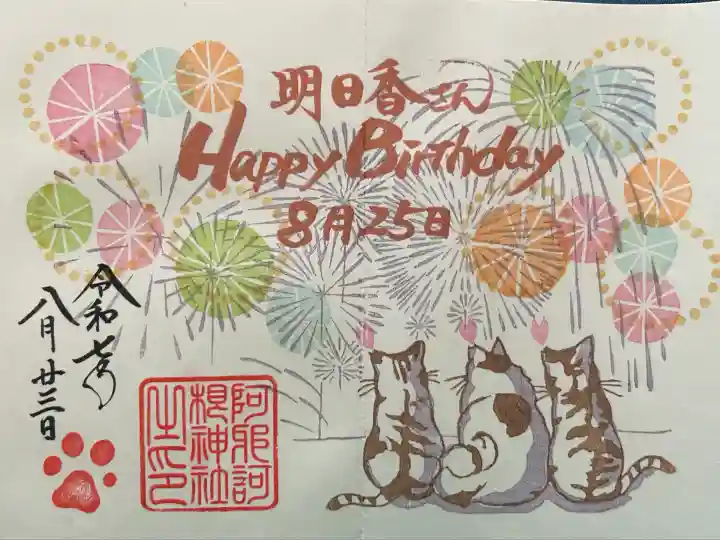 明日香さん
Happy Birthday
8月25日
令和七年
八月廿三日
阿耶訶
根神社
之印